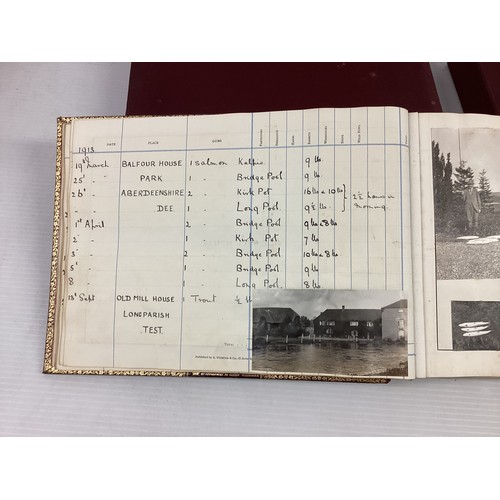 DATE PLACE GAME
1913
19th March BALFOUR HOUSE 1 Salmon Kelpie 9 lb
25 " PARK 1 " Bridge Pool 9 lb
26 " ABERDEENSHIRE 2 " Kirk Pot 16 lb & 10 lb } 2½ hours a morning.
" DEE 1 " Long Pool 9½ lb
1st April 2 " Bridge Pool 9 lb & 8 lb
2 " 1 " Kirk Pot 7 lb
3 " 2 " Bridge Pool 10 lb & 8 lb
5 " 1 " Bridge Pool 9 lb
8 1 Long Pool 8 lb
13th Sept OLD MILL HOUSE 1 Trout ½ lb
LONGPARISH
TEST.